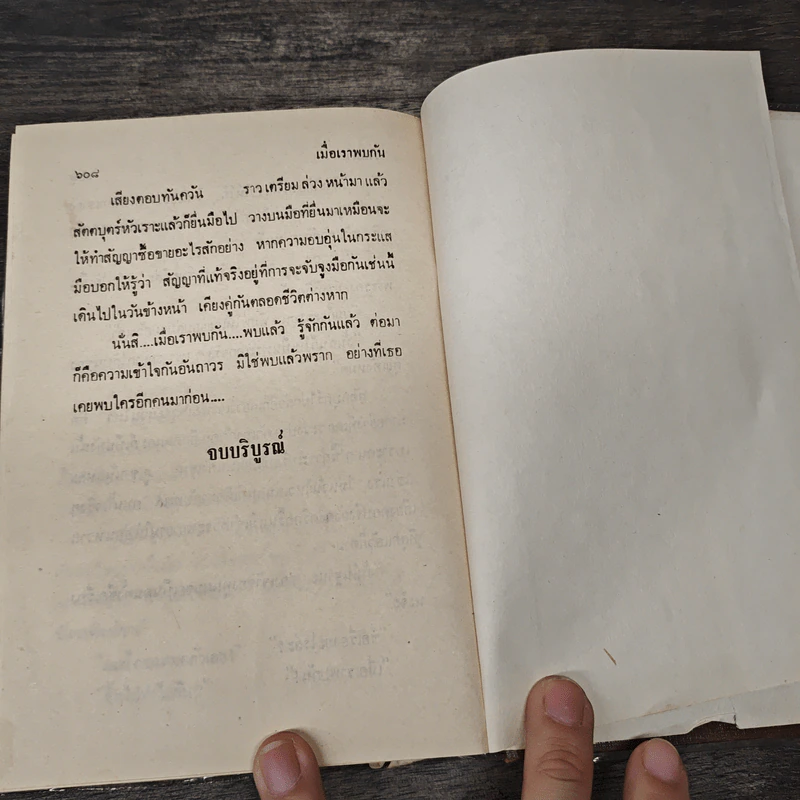 เมื่อเราพบกัน
๖๐๘
เสียงตอบทันควัน ราวเตรียมล่วงหน้ามาแล้ว
สัตตบุตร์หัวเราะแล้วก็ยื่นมือไป วางบนมือที่ยื่นมาเหมือนจะ
ให้ทำสัญญาซื้อขายอะไรสักอย่าง หากความอบอุ่นในกระแส
มือบอกให้รู้ว่า สัญญาที่แท้จริงอยู่ที่การจะจับจูงมือกันเช่นนี้
เดินไปในวันข้างหน้า เคียงคู่กันตลอดชีวิตต่างหาก
นั่นสิ....เมื่อเราพบกัน....พบแล้ว รู้จักกันแล้ว ต่อมา
ก็คือความเข้าใจกันอันถาวร มิใช่พบแล้วพราก อย่างที่เธอ
เคยพบใครอีกคนมาก่อน....
จบบริบูรณ์